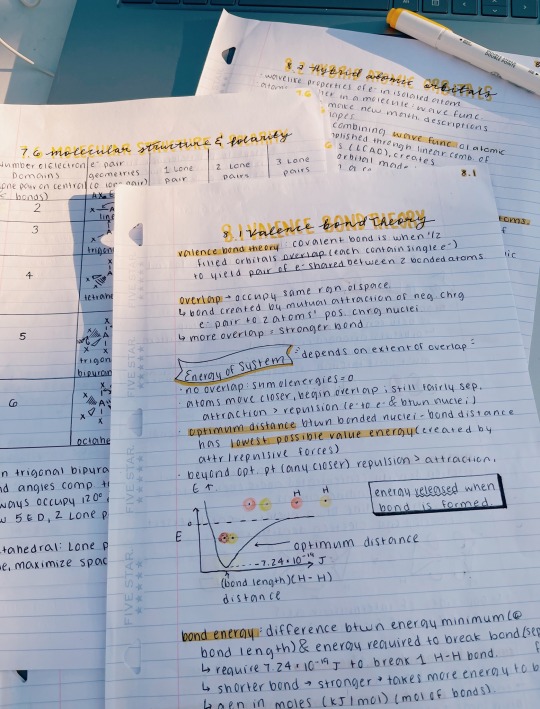 8.2 Hybrid atomic orbitals
wavelike properties of e⁻ in isolated atom
in a molecule: wave func.
make new math descriptions
combining wave func of atomic
through linear comb. of
(LCAO), creates
orbital
7.6 molecular structure & polarity
e⁻ pair
Domains
geometries
1 Lone pair
2 Lone pairs
3 Lone pairs
bonds)
2
3
trigon
4
tetrahe
5
trigon
bipyran
6
octahe
n trigonal bipyra
nd angles comp. t
ways occupy 120°
w 5 ED, 2 Lone p
tahedral: Lone p
e, maximize spac
8.1
8.1 valence bond theory
valence bond theory: covalent bond is when 1/2
filled orbitals overlap (each contain single e⁻)
to yield pair of e⁻ shared between 2 bonded atoms
overlap → occupy same rgn of space.
↳ bond created by mutual attraction of neg. chrg
e⁻ pair to 2 atoms' pos. chrg nuclei
↳ more overlap = stronger bond
Energy of System : depends on extent of overlap :
· no overlap: sum of energies = 0
· atoms move closer, begin overlap; still fairly sep.
attraction > repulsion (e⁻ to e⁻ & btwn nuclei)
· optimum distance btwn bonded nuclei - bond distance
has lowest possible value energy (created by
attr/repulsive forces)
· beyond opt. pt (any closer) repulsion > attraction,
E ↑.
H H
energy released when
bond is formed.
0
E
optimum distance
-7.24·10⁻¹⁹ J
(bond length)(H-H)
distance
bond energy: difference btwn energy minimum (@
bond length) & energy required to break bond (sep
↳ require 7.24·10⁻¹⁹ J to break 1 H-H bond.
↳ shorter bond → stronger → takes more energy to b
↳ gen in moles (kJ/mol) (mol of bonds).
FIVE STAR
FIVE STAR
FIVE STAR